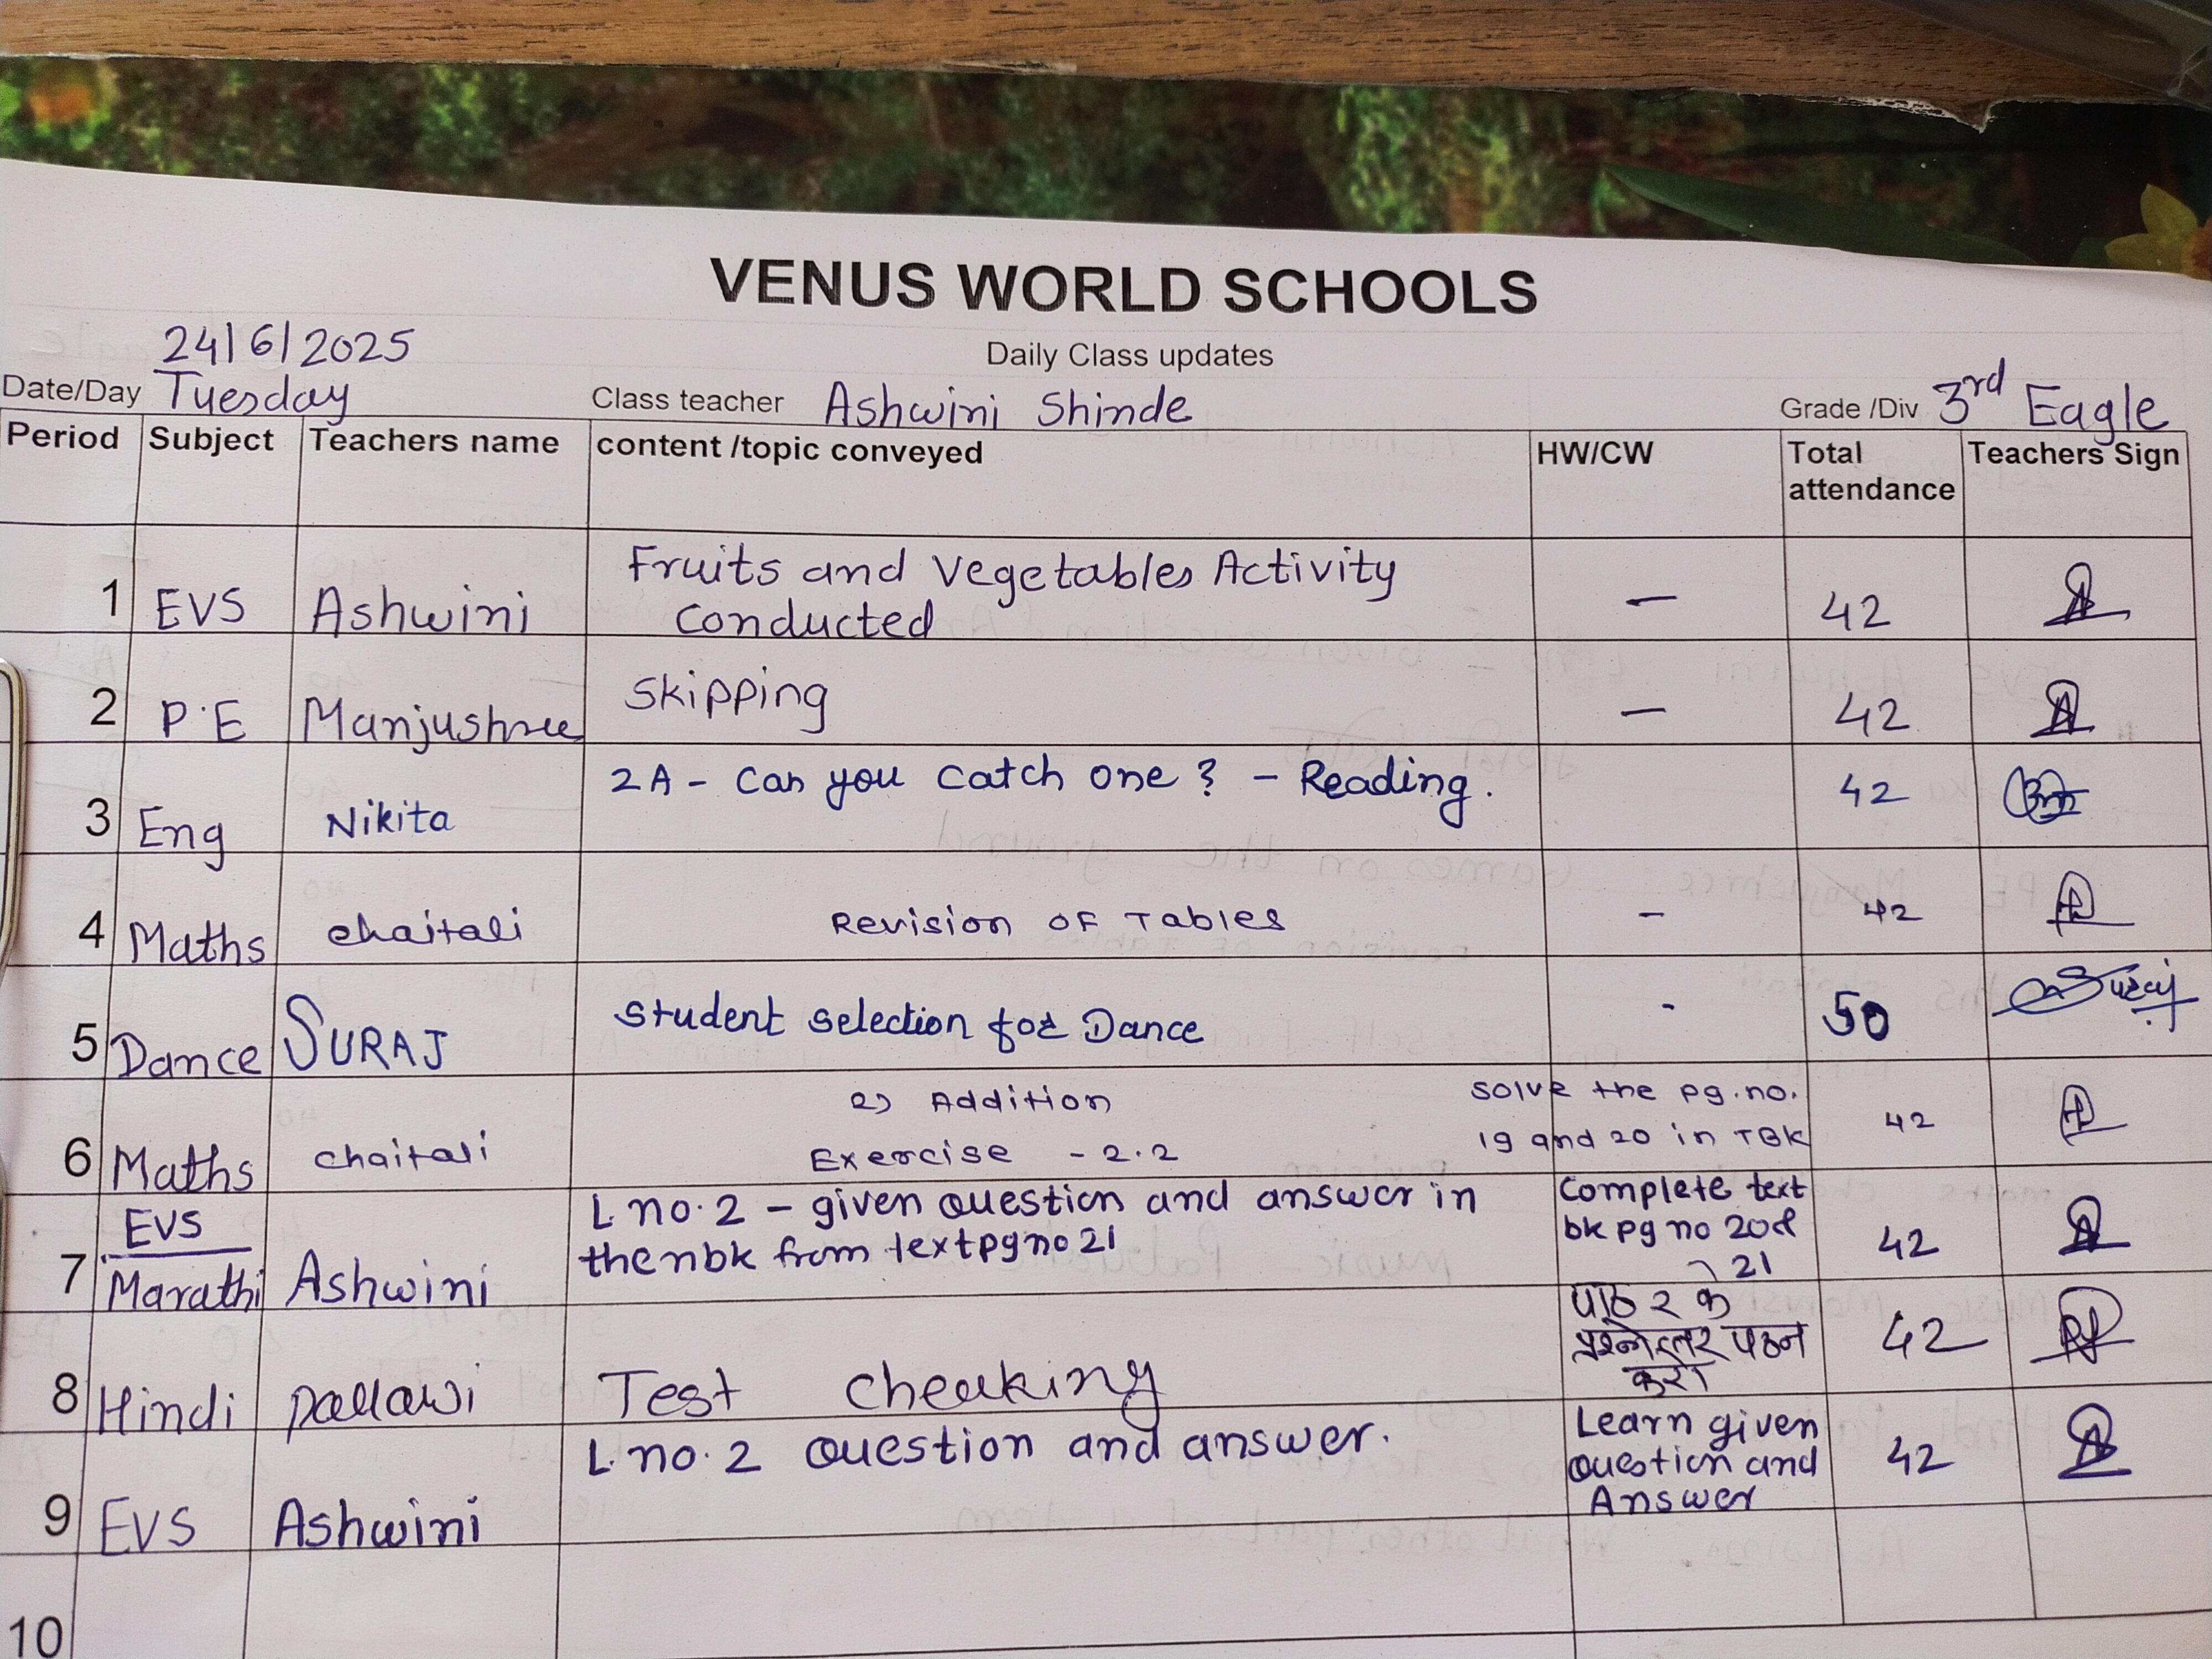 VENUS WORLD SCHOOLS
Daily Class updates
24/6/2025
Date/Day Tuesday Class teacher Ashwini Shinde Grade /Div 3rd Eagle
Period Subject Teachers name content /topic conveyed HW/CW Total attendance Teachers Sign
1 EVS Ashwini Fruits and Vegetables Activity
Conducted — 42
2 P.E Manjushree Skipping — 42
3 Eng Nikita 2A - Can you catch one ? - Reading. 42
4 Maths chaitali Revision OF Tables - 42
5 Dance SURAJ Student selection for Dance - 50 Suraj
6 Maths chaitali 2) Addition
Exercise - 2.2
Solve the pg.no.
19 and 20 in TBK 42
7 EVS
Marathi Ashwini L. no. 2 - given question and answer in
the nbk from text pg no 21
Complete text
bk pg no 20 &
21 42
8 Hindi pallawi Test cheaking
पाठ २ के
प्रश्नोत्तर पठन
करो 42
9 EVS Ashwini L. no. 2 question and answer.
Learn given
question and
Answer 42
10